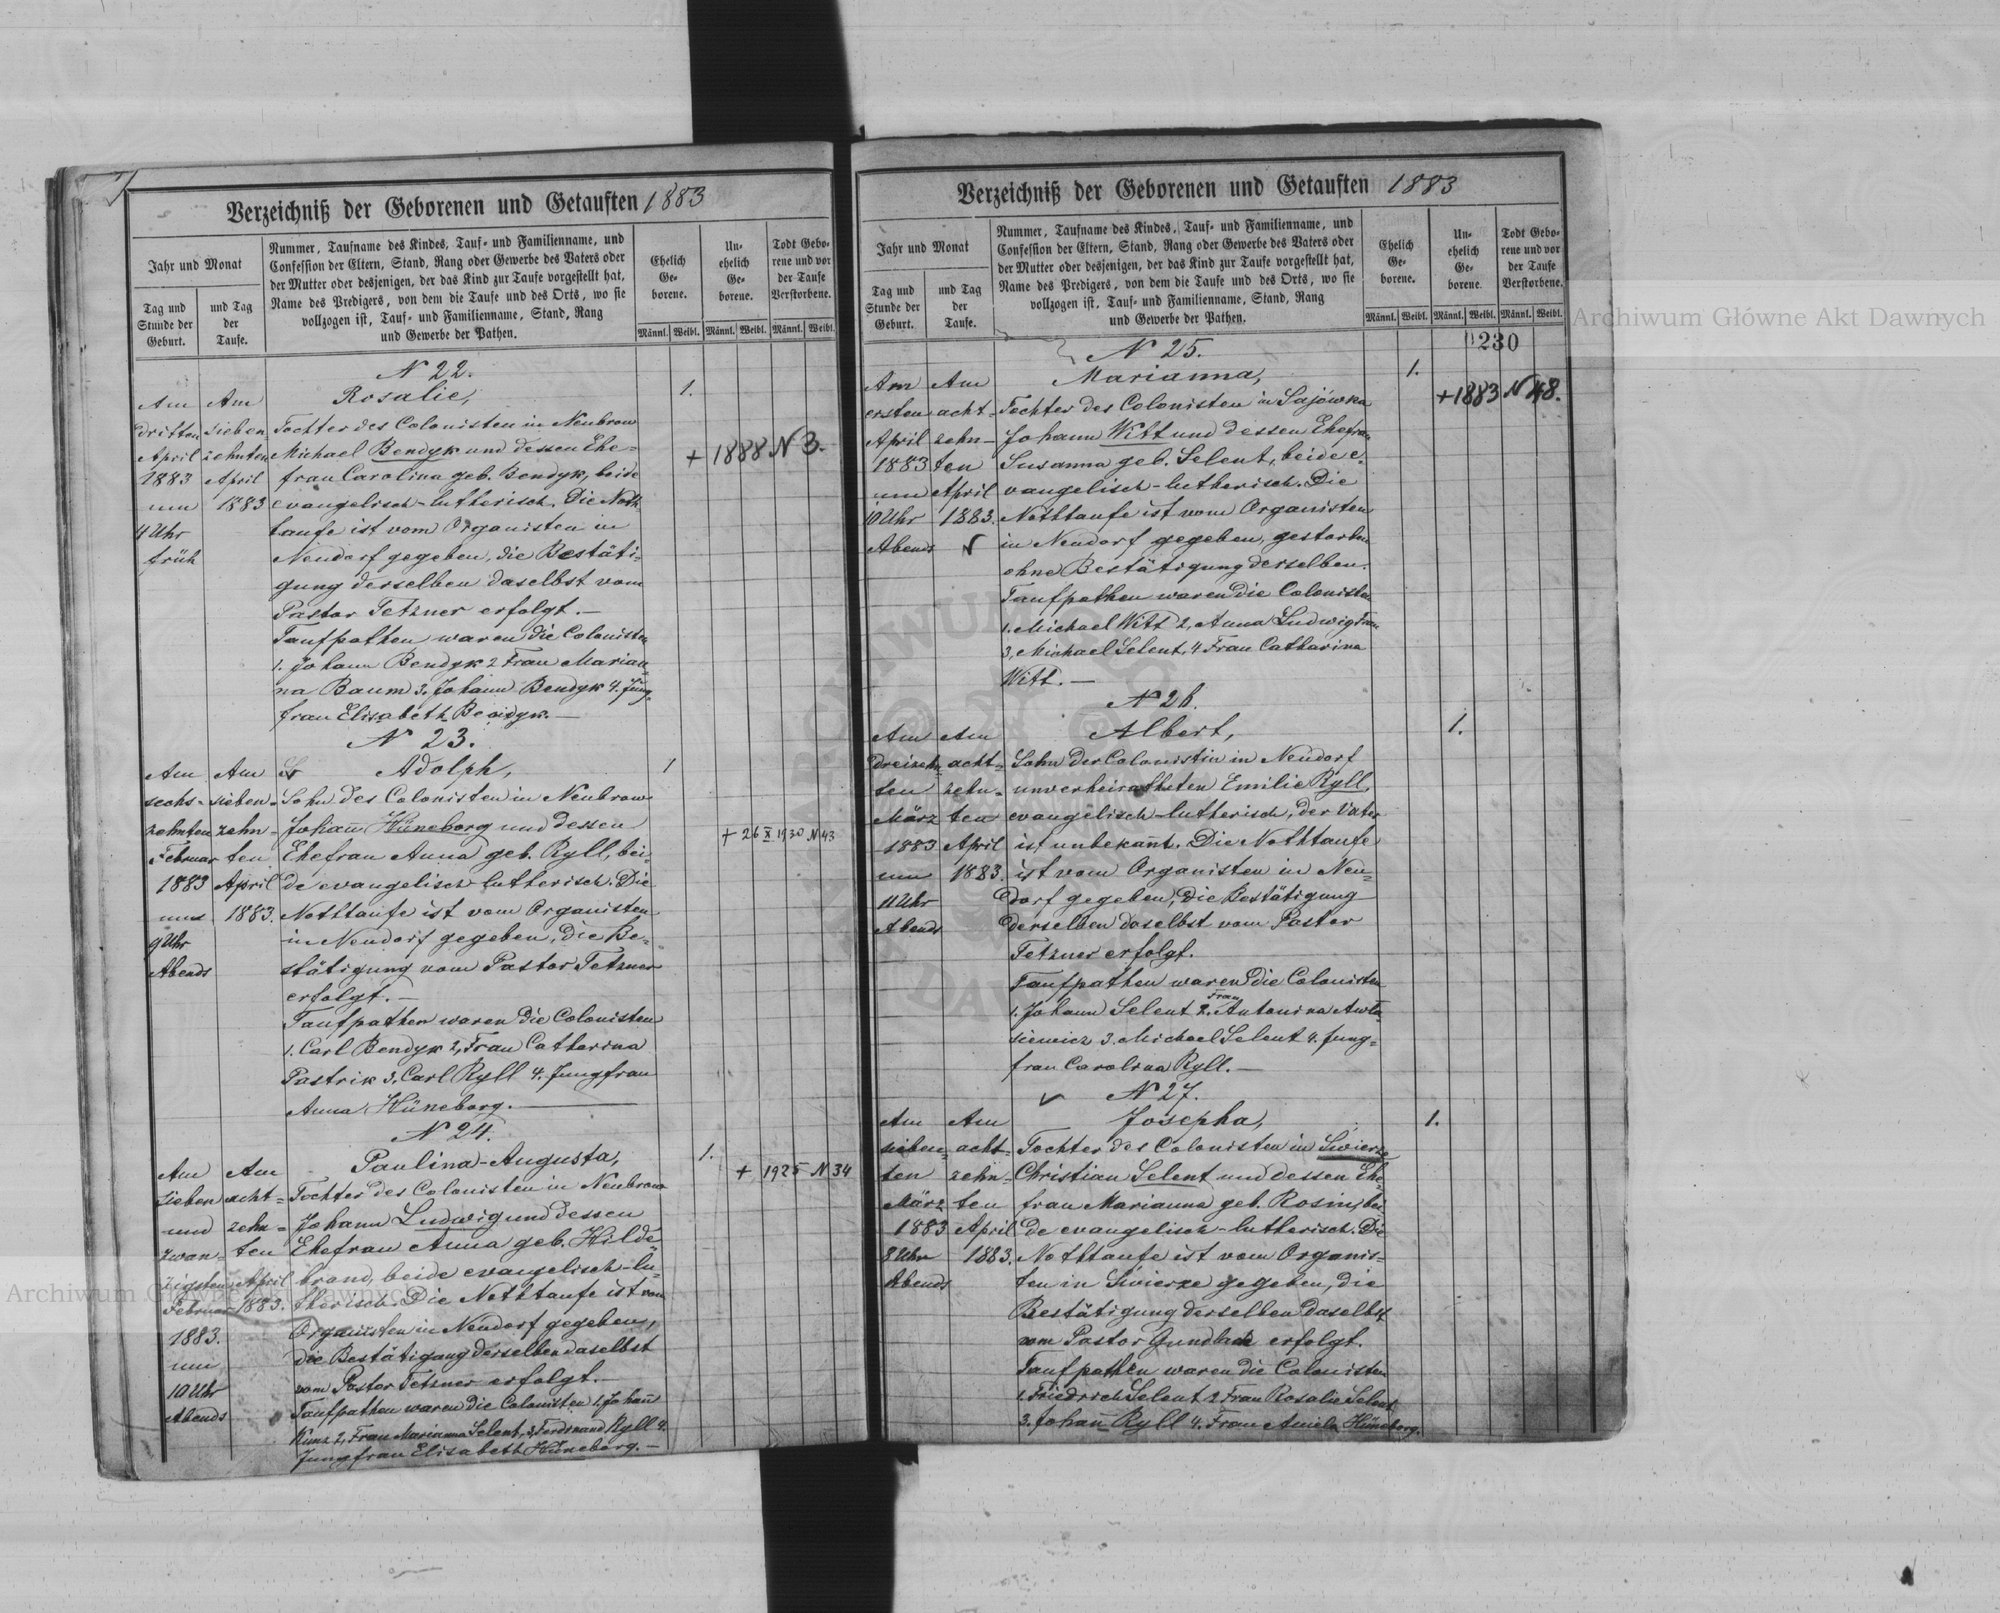 Verzeichniß der Geborenen und Getauften 1883
Jahr und Monat
Tag und Stunde der Geburt.
und Tag der Taufe.
Nummer, Taufname des Kindes, Tauf- und Familienname, und
Confession der Eltern, Stand, Rang oder Gewerbe des Vaters oder
der Mutter oder desjenigen, der das Kind zur Taufe vorgestellt hat,
Name des Predigers, von dem die Taufe und des Orts, wo sie
vollzogen ist, Tauf- und Familienname, Stand, Rang
und Gewerbe der Pathen.
Ehelich Geborene.
Unehelich Geborene.
Todt Geborene und vor der Taufe Verstorbene.
Männl. Weibl. Männl. Weibl. Männl. Weibl.
N 22.
Am Am Rosalie, 1.
dritten sieben- Tochter des Colonisten in Neubrow
April zehnten Michael Bendyk und dessen Ehe- + 1888 N 3.
1883 April frau Carolina geb. Bendyk, beide
um 1883 evangelisch-lutherisch. Die Noth
4 Uhr taufe ist vom Organisten in
früh Neudorf gegeben, die Bestäti-
gung derselben daselbst vom
Pastor Tetzner erfolgt. —
Taufpathen waren die Colonisten
1. Johann Bendyk 2 Frau Marian-
na Baum 3. Johann Bendyk 4. Jung-
frau Elisabeth Bendyk. —
N 23.
Am Am Adolph, 1
sechs- sieben- Sohn des Colonisten in Neubrow
zehnten zehn- Johañ Hüneborg und dessen + 26 X 1930 N 43
Februar ten Ehefrau Anna geb. Ryll, bei-
1883 April de evangelisch-lutherisch. Die
um 1883. Nothtaufe ist vom Organisten
9 Uhr in Neudorf gegeben, die Be-
Abends stätigung vom Pastor Tetzner
erfolgt. —
Taufpathen waren die Colonisten
1. Carl Bendyk 2, Frau Catharina
Pastrik 3, Carl Ryll 4. Jungfrau
Anna Hüneborg. —
N 24.
Am Am Paulina-Augusta, 1.
sieben acht- Tochter des Colonisten in Neubrow + 1925 N 34
und zehn- Johann Ludwig und dessen
zwan- ten Ehefrau Anna geb. Hilde
zigsten April brand, beide evangelisch-lu-
Februar 1883. therisch. Die Nothtaufe ist vom
1883. Organisten in Neudorf gegeben,
um die Bestätigung derselben daselbst
10 Uhr vom Pastor Tetzner erfolgt. —
Abends Taufpathen waren die Colonisten 1. Johañ
Kunz 2, Frau Marianna Selent, 3, Ferdinand Ryll 4.
Jungfrau Elisabeth Hüneborg. —
Verzeichniß der Geborenen und Getauften 1883
Jahr und Monat
Tag und Stunde der Geburt.
und Tag der Taufe.
Nummer, Taufname des Kindes, Tauf- und Familienname, und
Confession der Eltern, Stand, Rang oder Gewerbe des Vaters oder
der Mutter oder desjenigen, der das Kind zur Taufe vorgestellt hat,
Name des Predigers, von dem die Taufe und des Orts, wo sie
vollzogen ist, Tauf- und Familienname, Stand, Rang
und Gewerbe der Pathen.
Ehelich Geborene.
Unehelich Geborene.
Todt Geborene und vor der Taufe Verstorbene.
Männl. Weibl. Männl. Weibl. Männl. Weibl.
230
N 25.
Am Am Marianna, 1.
ersten acht- Tochter des Colonisten in Sajówka + 1883 N 48.
April zehn- Johann Witt und dessen Ehefrau
1883 ten Susanna geb. Selent, beide e-
um April vangelisch-lutherisch. Die
10 Uhr 1883. Nothtaufe ist vom Organisten
Abends in Neudorf gegeben, gestorben
ohne Bestätigung derselben.
Taufpathen waren die Colonisten
1. Michael Witt 2, Anna Ludwig Frau
3, Michael Selent, 4 Frau Catharina
Witt. —
N 26.
Am Am Albert, 1.
dreizehn- acht- Sohn der Colonistin in Neudorf
ten zehn- unverheiratheten Emilie Ryll,
März ten evangelisch-lutherisch, der Vater
1883 April ist unbekañt. Die Nothtaufe
um 1883. ist vom Organisten in Neu-
11 Uhr dorf gegeben, die Bestätigung
Abends derselben daselbst vom Pastor
Tetzner erfolgt.
Taufpathen waren die Colonisten
1. Johann Selent 2. Frau Antonina Awta-
siewicz 3. Michael Selent 4. Jung-
frau Carolina Ryll. —
N 27.
Am Am Josepha, 1.
sieben- acht- Tochter des Colonisten in Swierze
ten zehn- Christian Selent und dessen Ehe-
März ten frau Marianna geb. Rosin, bei-
1883 April de evangelisch-lutherisch. Die
8 Uhr 1883. Nothtaufe ist vom Organis-
Abends ten in Swierze gegeben, die
Bestätigung derselben daselbst
vom Pastor Gundlach erfolgt.
Taufpathen waren die Colonisten
1. Friedrich Selent 2 Frau Rosalie Selent
3. Johañ Ryll 4. Frau Amiela Hüneborg.
Archiwum Główne Akt Dawnych
Archiwum Główne Akt Dawnych